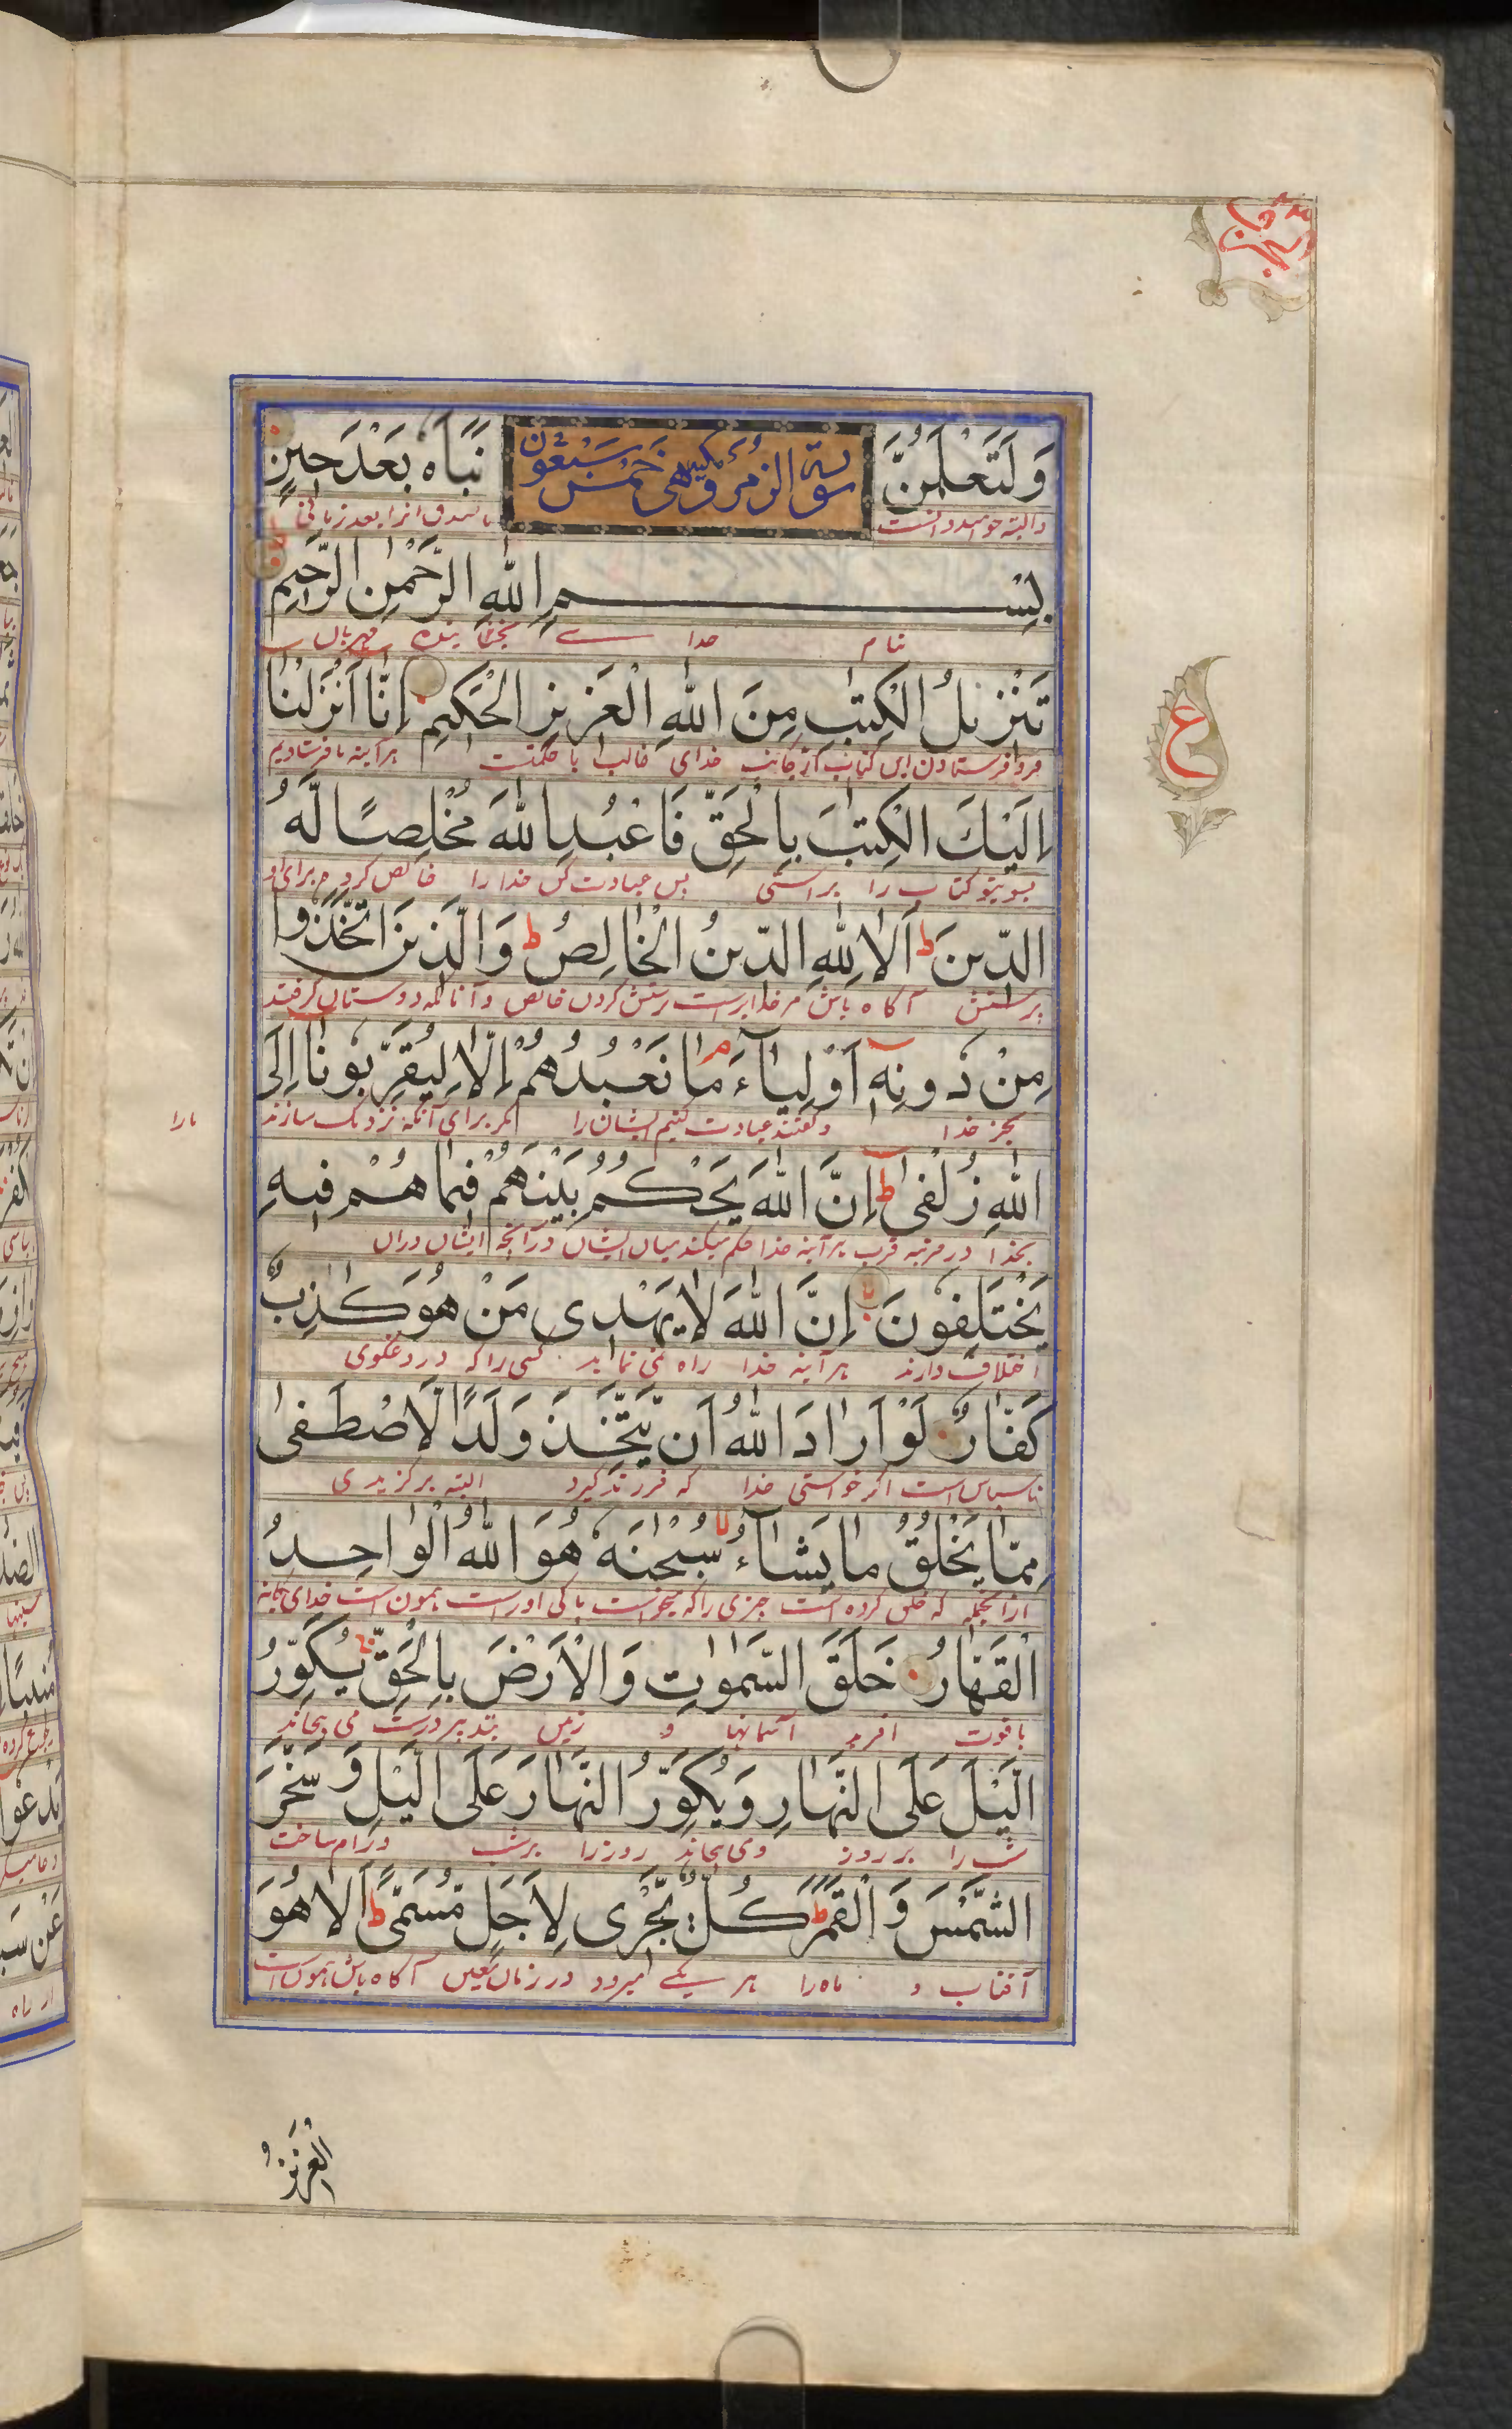 وَلَتَعْلَمُنَّ نَبَاَهٗ بَعْدَ حِيْنٍ
سورة الزمر مكية وهي خمس سبعون
والبته خواهید دانست صدق انرا بعد زمانی
بِسْمِ اللهِ الرَّحْمٰنِ الرَّحِيْمِ
بنام خدا بخشاینده مهربان
تَنْزِيْلُ الْكِتٰبِ مِنَ اللهِ الْعَزِيْزِ الْحَكِيْمِ اِنَّا اَنْزَلْنَا
فرو فرستادن این کتاب از جانب خدای غالب با حکمت هر آینه ما فرستادیم
اِلَيْكَ الْكِتٰبَ بِالْحَقِّ فَاعْبُدِ اللهَ مُخْلِصًا لَّهُ
بسوی تو کتاب را براستی پس عبادت کن خدا را خالص کرده برای او
الدِّيْنَ ط اَلَا لِلّٰهِ الدِّيْنُ الْخَالِصُ ط وَالَّذِيْنَ اتَّخَذُوْا
پرستش آگاه باش مر خدایراست پرستش کردن خالص و آنانکه دوستان گرفتند
مِنْ دُوْنِهٖ اَوْلِيَآءَ م مَا نَعْبُدُهُمْ اِلَّا لِيُقَرِّبُوْنَا اِلَى
بجز خدا و گفتند عبادت نکنیم ایشان را مگر برای آنکه نزدیک سازند
مارا
اللهِ زُلْفٰى ط اِنَّ اللهَ يَحْكُمُ بَيْنَهُمْ فِيْمَا هُمْ فِيْهِ
بخدا در مرتبه قرب هر آینه خدا حکم میکند میان ایشان در آنچه ایشان دران
يَخْتَلِفُوْنَ لا اِنَّ اللهَ لَا يَهْدِىْ مَنْ هُوَ كٰذِبٌ
اختلاف دارند هر آینه خدا راه نمی نماید کسی را که دروغگوی
كَفَّارٌ لَوْ اَرَادَ اللهُ اَنْ يَّتَّخِذَ وَلَدًا لَّاصْطَفٰى
ناسپاس است اگر خواستی خدا که فرزند گیرد البته برگزیدی
مِمَّا يَخْلُقُ مَا يَشَآءُ لا سُبْحٰنَهٗ هُوَ اللهُ الْوَاحِدُ
ازانچه که خلق کرده است چیزی را که میخواست پاکی اوراست همون است خدای یگانه
الْقَهَّارُ خَلَقَ السَّمٰوٰتِ وَالْاَرْضَ بِالْحَقِّ يُكَوِّرُ
با قوت افرید آسمانها و زمین بتدبیر درست می پیچاند
الَّيْلَ عَلَى النَّهَارِ وَيُكَوِّرُ النَّهَارَ عَلَى الَّيْلِ وَسَخَّرَ
شب را بر روز و می پیچاند روز را بر شب و رام ساخت
الشَّمْسَ وَالْقَمَرَ ط كُلٌّ يَّجْرِىْ لِاَجَلٍ مُّسَمًّى ط اَلَا هُوَ
آفتاب و ماه را هر یکی میرود در زمان معین آگاه باش همون است
الْعَزِيْزُ
ع